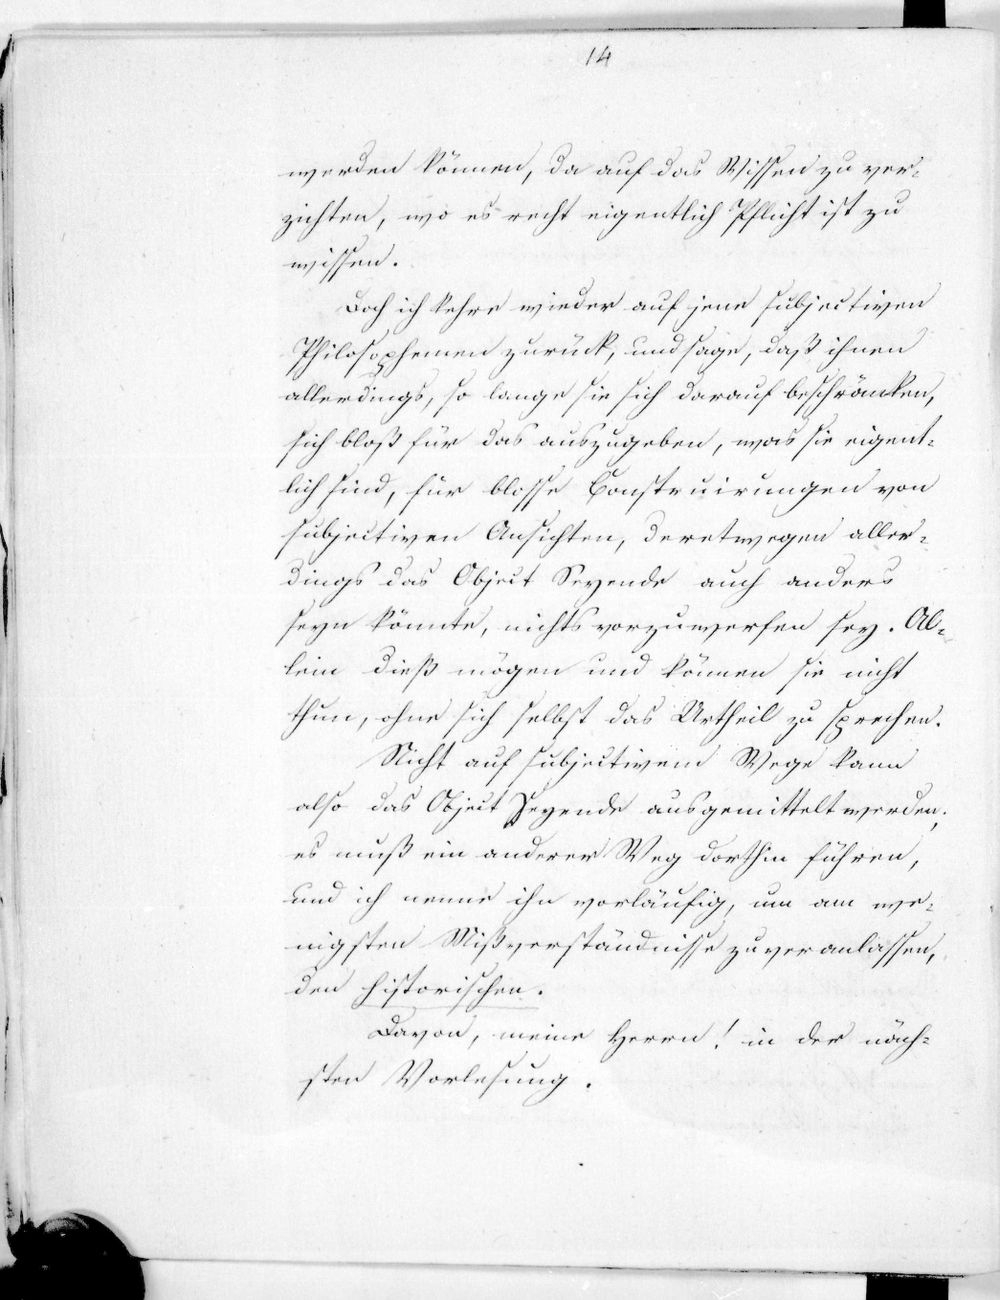 14
werden können, da auf das Wissen zu ver-
zichten, wo es recht eigentlich Pflicht ist zu
wissen.
Doch ich kehre wieder auf jene subjectiven
Philosophemen zurück, und sage, daß ihnen
allerdings, so lange sie sich darauf beschränken,
sich bloß für das auszugeben, was sie eigent-
lich sind, für blosse Construirungen von
subjectiven Ansichten, deretwegen aller-
dings das Object Seyende auch anders
seyn könnte, nichts vorzuwerfen sey. Al-
lein dieß mögen und können sie nicht
thun, ohne sich selbst das Urtheil zu sprechen.
Nicht auf subjectivem Wege kann
also das Object Seyende ausgemittelt werden,
es muß ein anderer Weg dorthin führen,
und ich nenne ihn vorläufig, um am we-
nigsten Mißverständnisse zu veranlassen,
den historischen.
Davon, meine Herrn! in der näch-
sten Vorlesung.